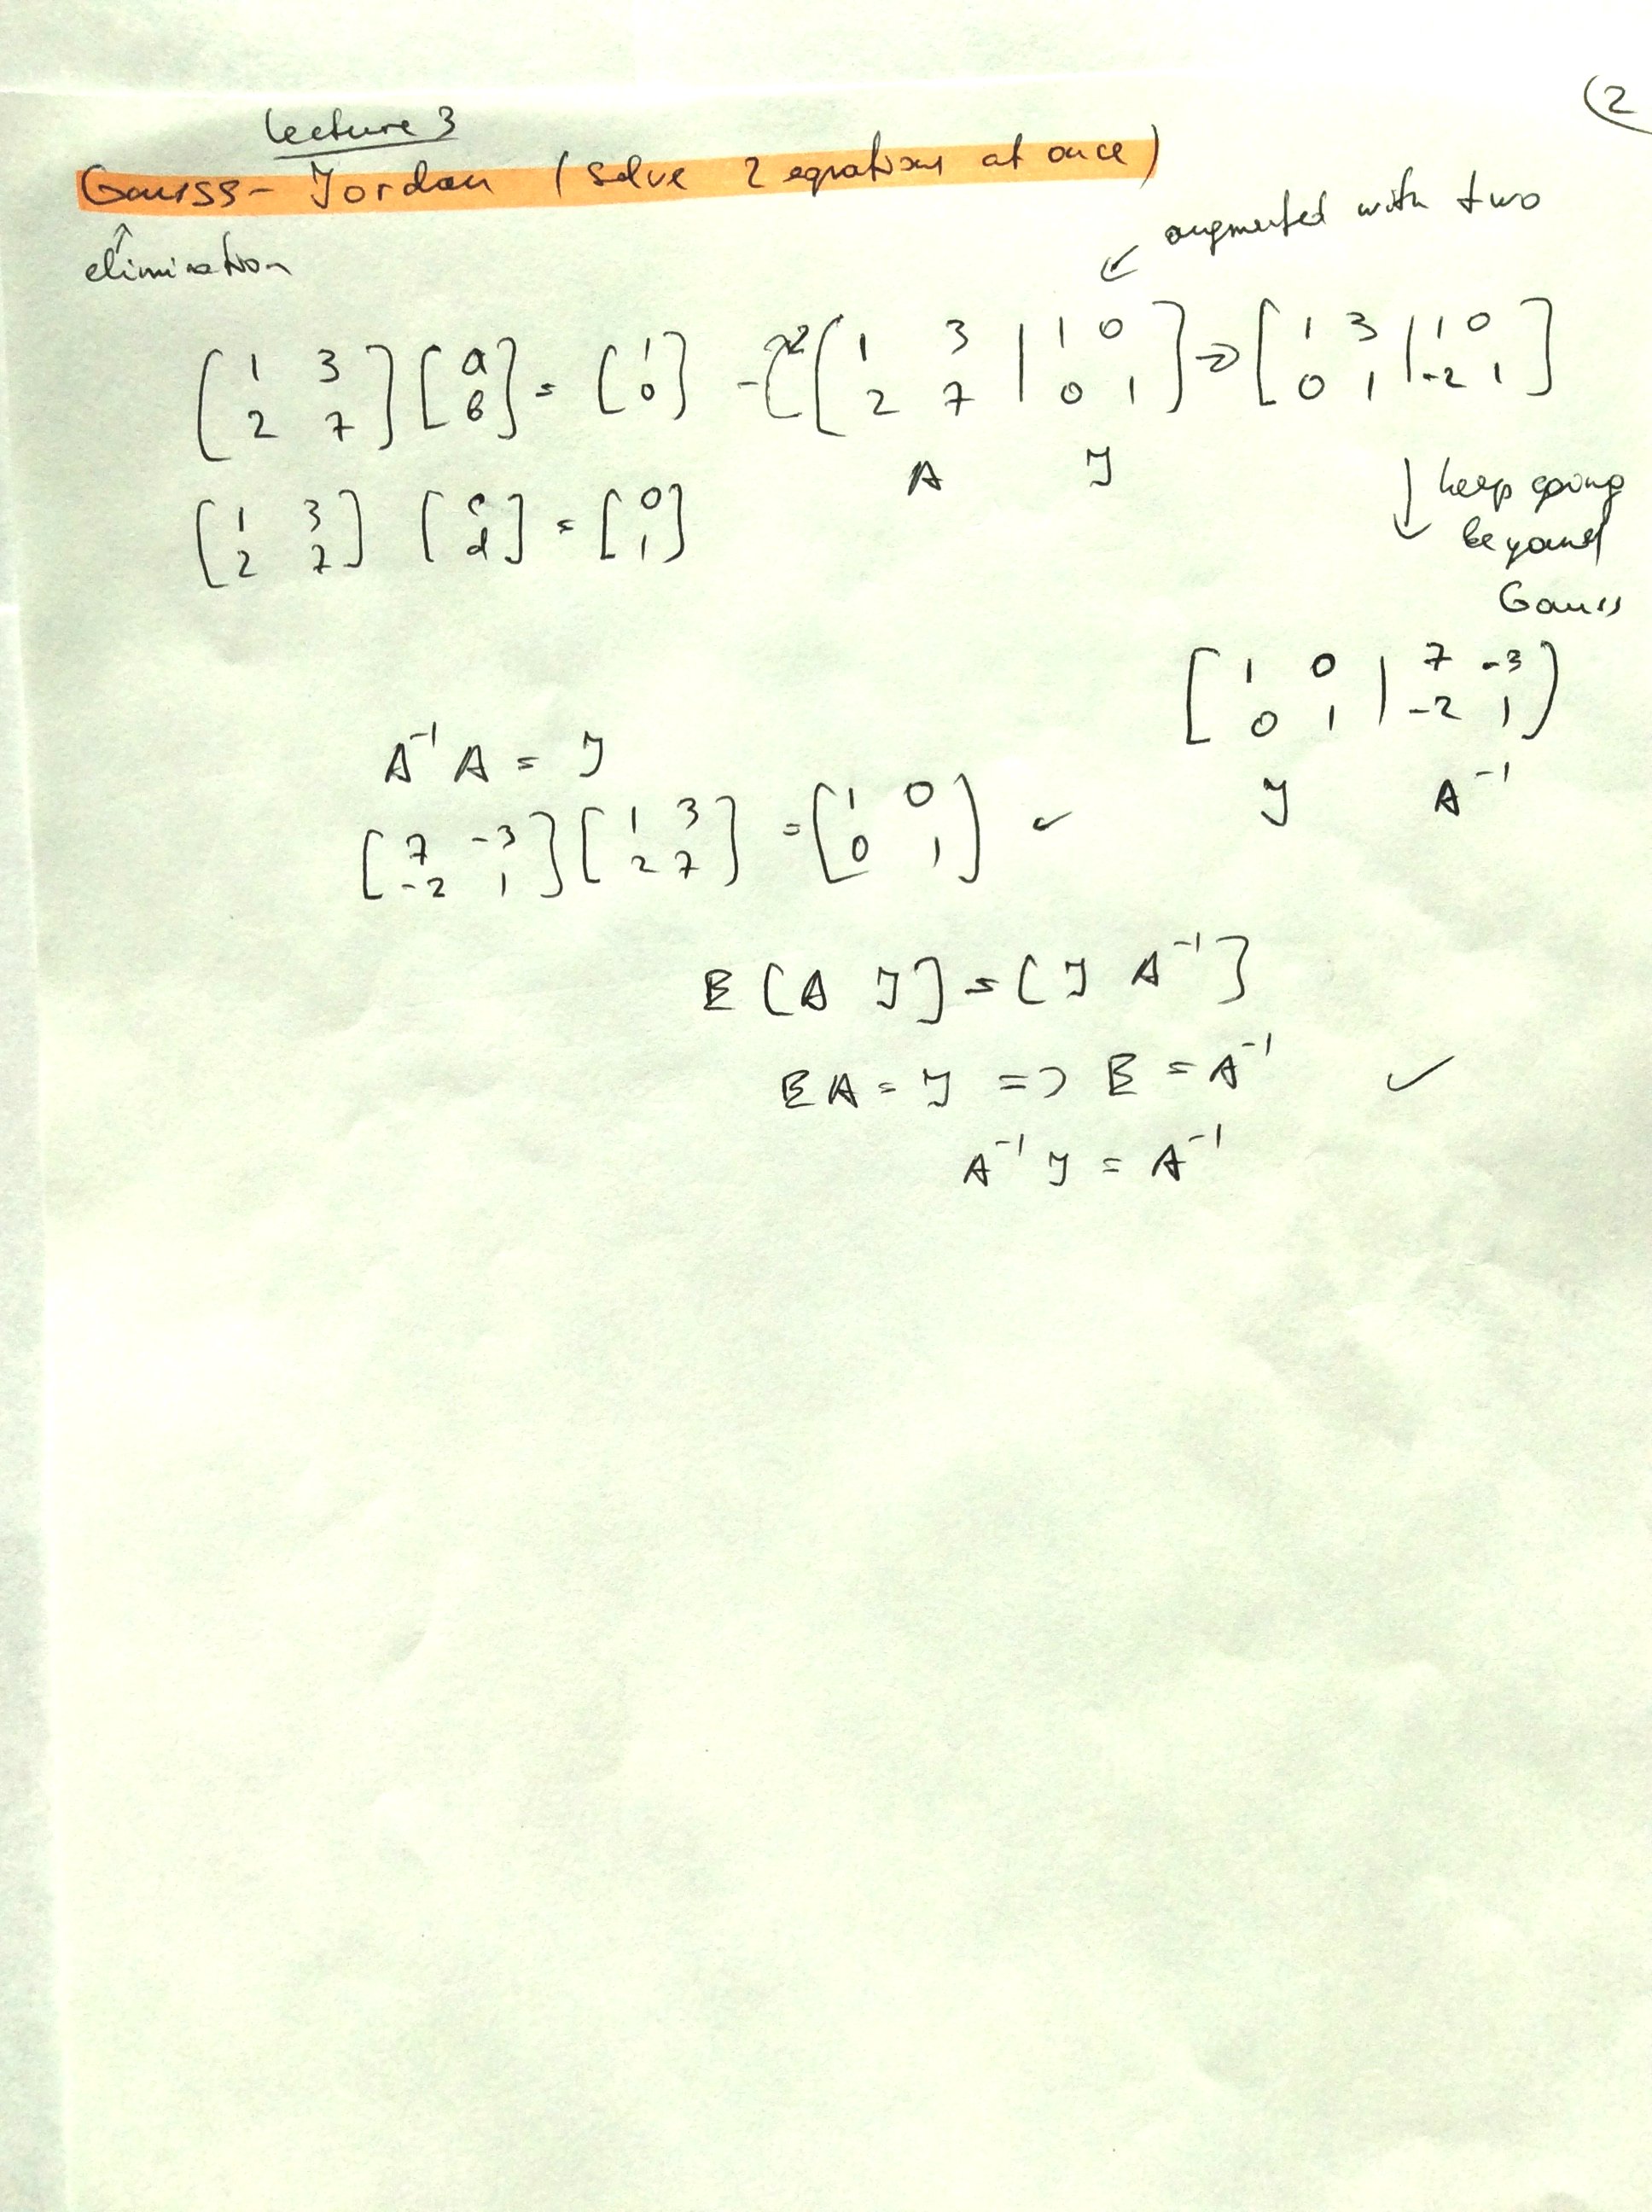 (2
Lecture 3
Gauss-Jordan (solve 2 equations at once)
elimination
augmented with two
[1 3; 2 7] [a; b] = [1; 0] [1 3 | 1 0; 2 7 | 0 1] → [1 3 | 1 0; 0 1 | -2 1]
A I
[1 3; 2 7] [c; d] = [0; 1]
keep going
beyond
Gauss
[1 0 | 7 -3; 0 1 | -2 1]
I A⁻¹
A⁻¹ A = I
[7 -3; -2 1] [1 3; 2 7] = [1 0; 0 1] ✓
E [A I] = [I A⁻¹]
EA = I => E = A⁻¹ ✓
A⁻¹ I = A⁻¹